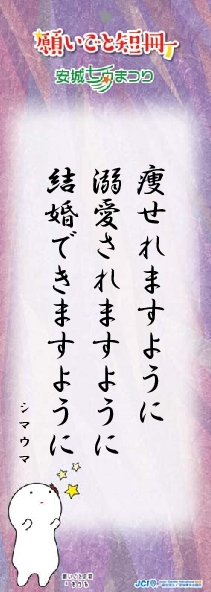 願いごと短冊
安城七夕まつり
痩せれますように
溺愛されますように
結婚できますように
シマウマ
JCI